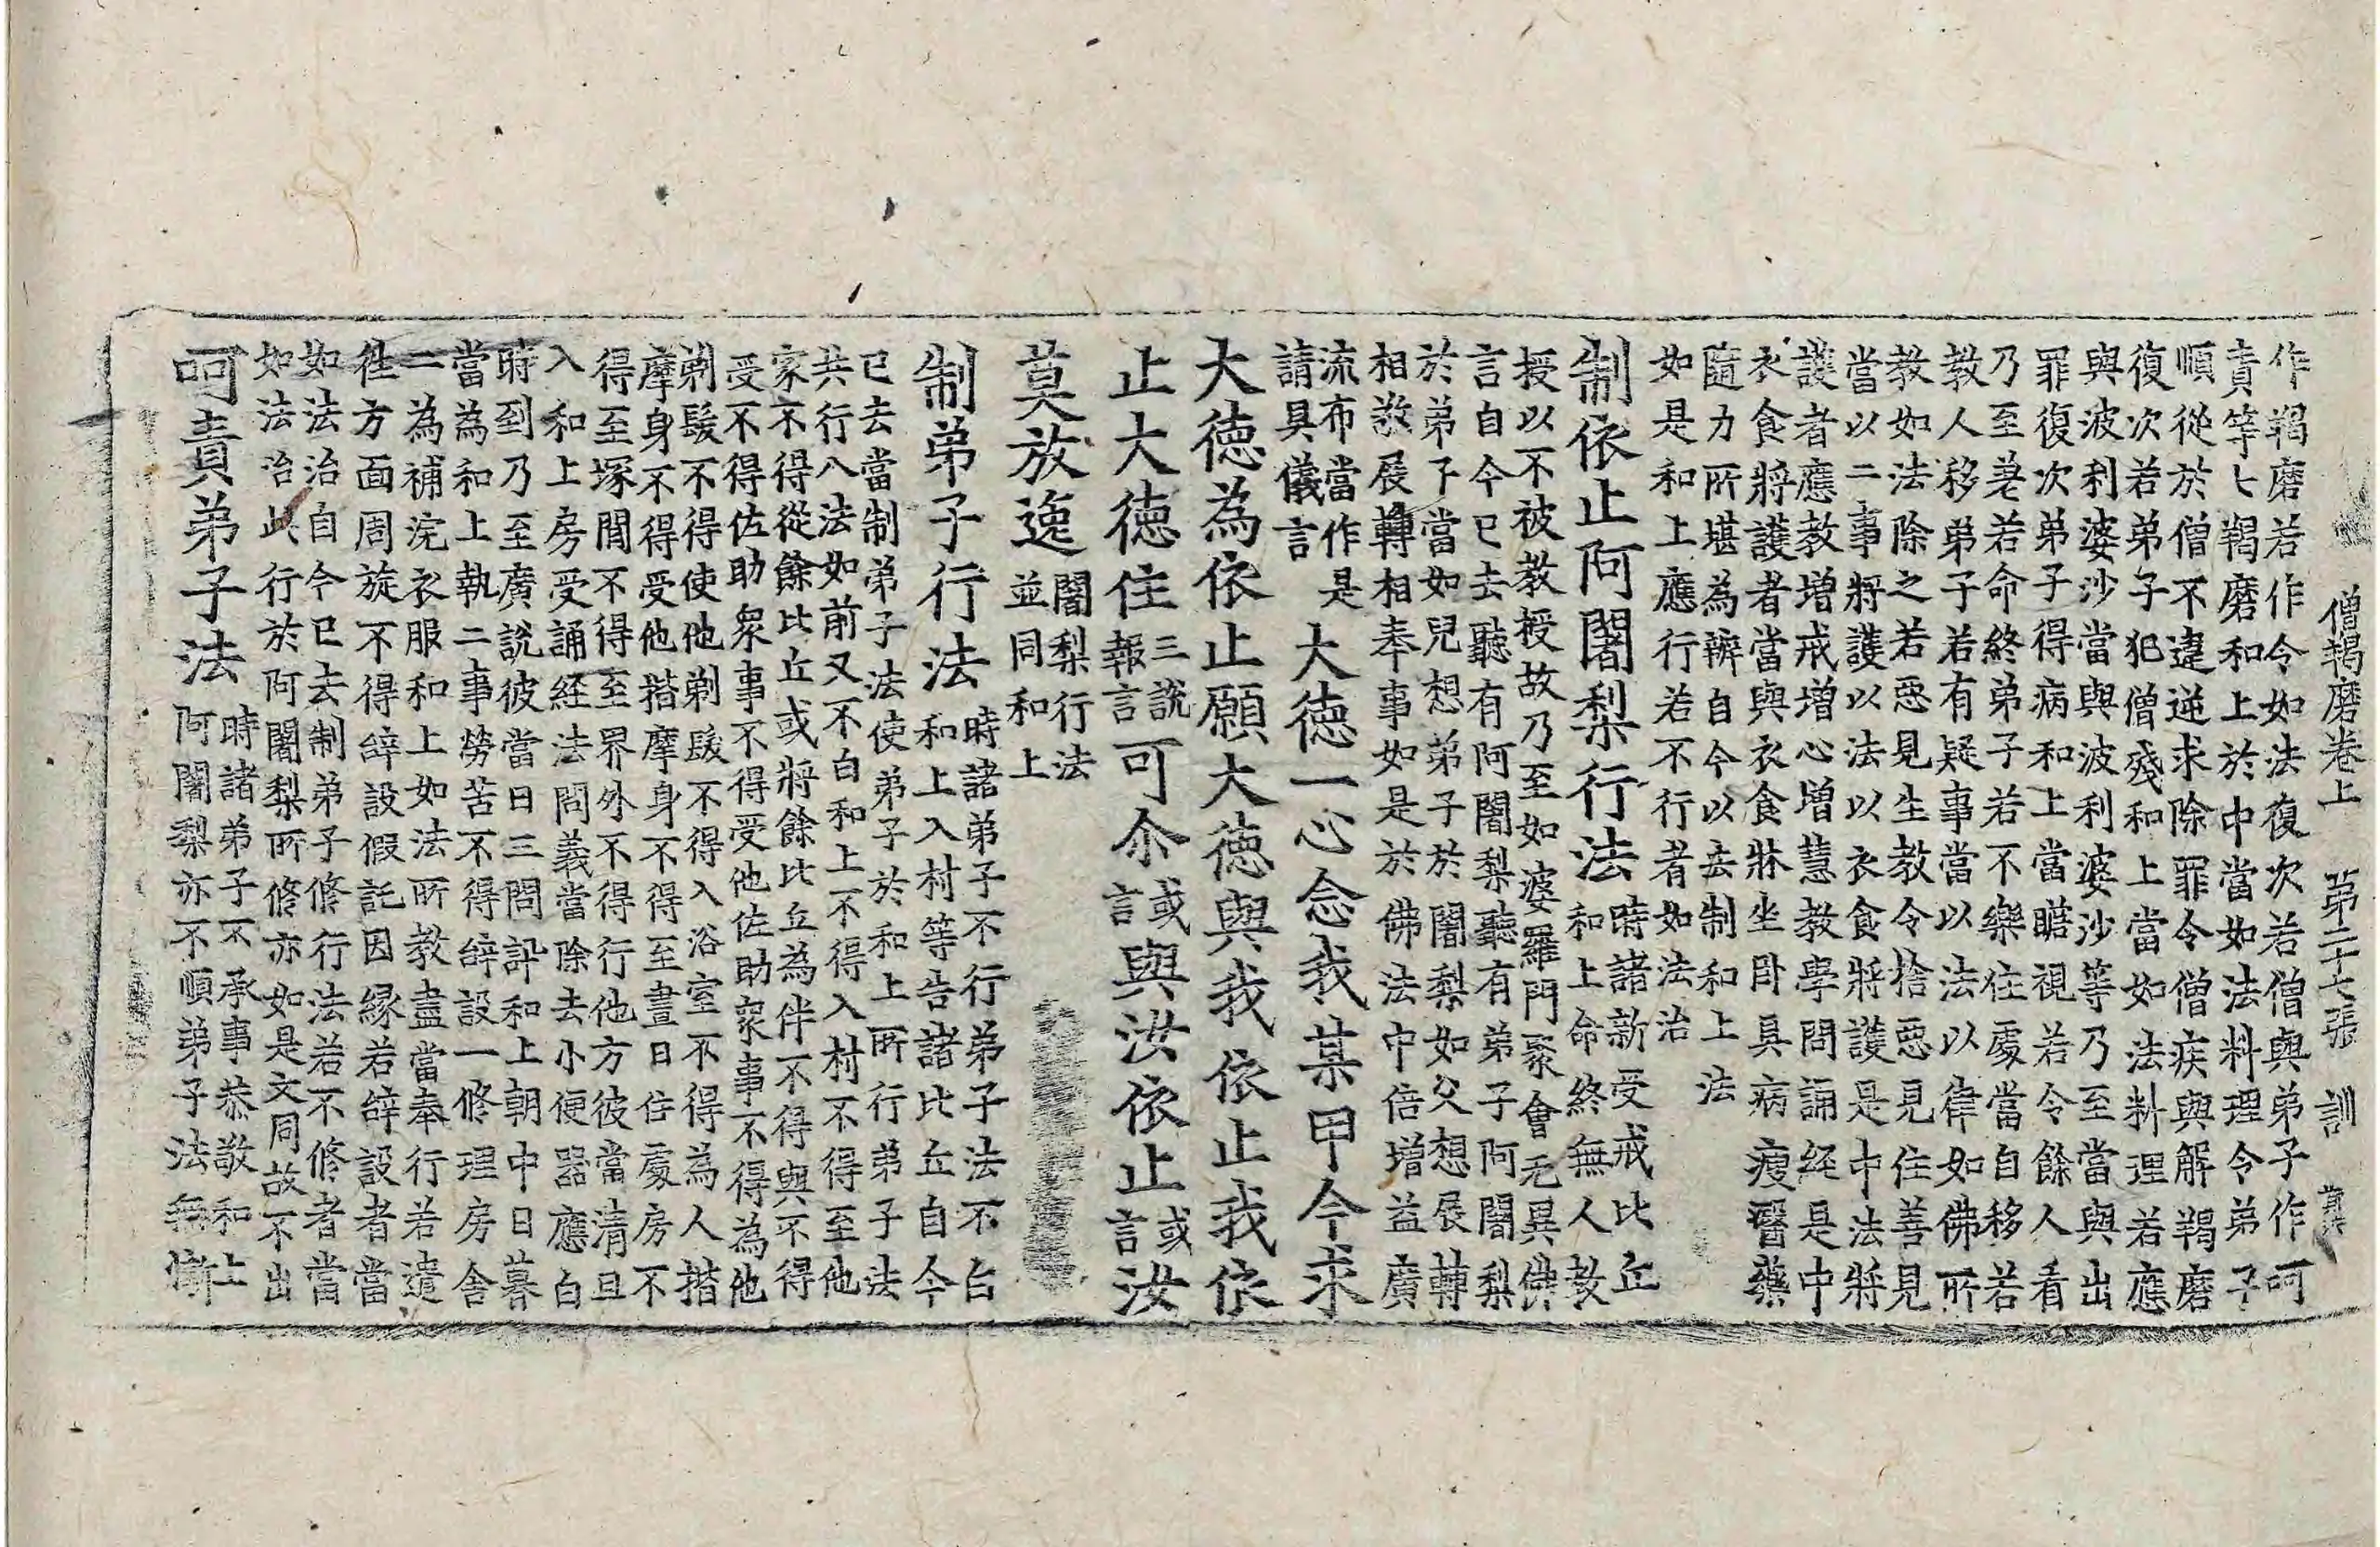 僧羯磨卷上 第二十七張 訓
作羯磨若作令如法復次若僧與弟子作呵
責等七羯磨和上於中當如法料理令弟子
順從於僧不違逆求除罪令僧疾與解羯磨
復次若弟子犯僧殘和上當如法料理若應
與波利婆沙當與波利婆沙等乃至當與出
罪復次弟子得病和上當瞻視若令餘人看
乃至差若命終弟子若不樂住處當自移若
教人移弟子若有疑事當以法以律如佛所
教如法除之若惡見生教令捨惡見住善見
當以二事將護以法以衣食將護是中法將
護者應教增戒增心增慧教學問誦経是中
衣食將護者當與衣食牀坐卧具病瘦醫藥
隨力所堪為辦自今以去制和上法
如是和上應行若不行者如法治
制依止阿闍梨行法
時諸新受戒比丘
和上命終無人教
授以不被教授故乃至如婆羅門聚會无異佛
言自今已去聽有阿闍梨聽有弟子阿闍梨
於弟子當如兒想弟子於闍梨如父想展轉
相敬展轉相奉事如是於佛法中倍增益廣
流布當作是
請具儀言
大德一心念我某甲今求
大德為依止願大德與我依止我依
止大德住
三說
報言
可尒
或
言
與汝依止
或
言
汝
莫放逸
闍梨行法
並同和上
制弟子行法
時諸弟子不行弟子法不白
和上入村等告諸比丘自今
已去當制弟子法使弟子於和上所行弟子法
共行八法如前又不白和上不得入村不得至他
家不得從餘比丘或將餘比丘為伴不得與不得
受不得佐助眾事不得受他佐助眾事不得為他
剃髮不得使他剃髮不得入浴室不得為人揩
摩身不得受他揩摩身不得至晝日住處房不
得至塚間不得至界外不得行他方彼當清旦
入和上房受誦経法問義當除去小便器應白
時到乃至廣說彼當日三問訊和上朝中日暮
當為和上執二事勞苦不得辞設一修理房舍
二為補浣衣服和上如法所教盡當奉行若遣
徃方面周旋不得辞設假託因緣若辞設者當
如法治自今已去制弟子修行法若不修者當
如法治此行於阿闍梨所修亦如是文同故不出
呵責弟子法
時諸弟子不承事恭敬和上
阿闍梨亦不順弟子法無慚